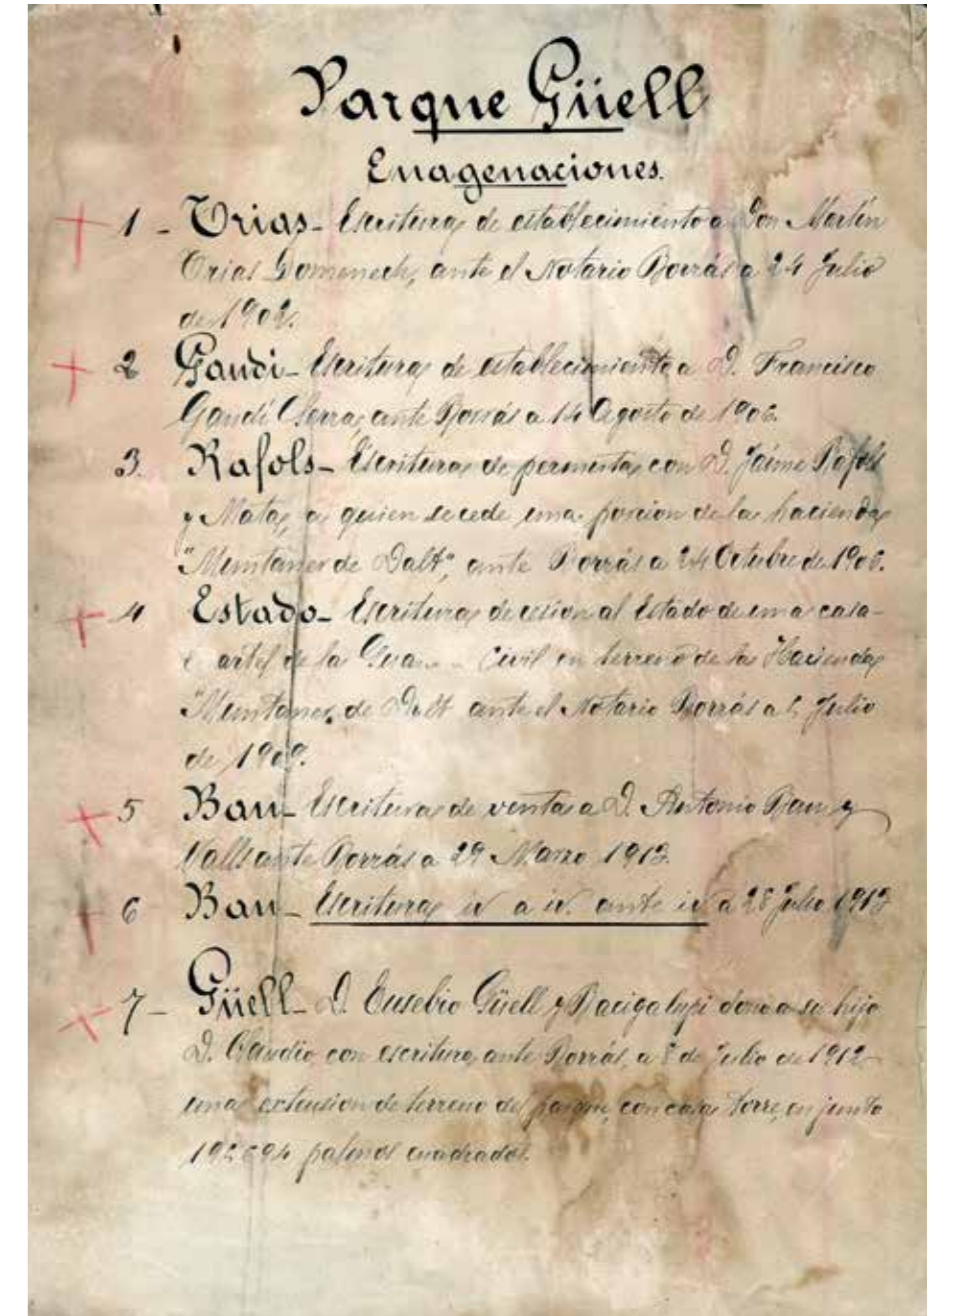 Parque Güell
Enagenaciones.
1 - Trias - Escritura de establecimiento a Don Martín
Trias Domenech, ante el Notario Borrás a 24 Julio
de 1902.
2 Gaudi - Escritura de establecimiento a D. Francisco
Gaudí Serra, ante Borrás a 14 Agosto de 1906.
3. Rafols - Escritura de permuta con D. Jaime Rafols
y Mata, a quien se cede una porcion de la hacienda
"Muntaner de Dalt", ante Borrás a 24 Octubre de 1906.
4 Estado - Escritura de cesion al Estado de una casa-
cuartel de la Guardia Civil en terreno de la Hacienda
"Muntaner de Dalt ante el Notario Borrás a Julio
de 1909.
5 Bau - Escritura de venta a D. Antonio Bau y
Valls ante Borrás a 29 Marzo 1913.
6 Bau - Escritura id a id. ante id a 28 Julio 1913
7 - Güell - D. Eusebio Güell y Bacigalupi dona a su hijo
D. Claudio, con escritura ante Borrás, a 8 de Julio de 1912
una extension de terreno del parque, con casa torre, en junto
palmos cuadrados.